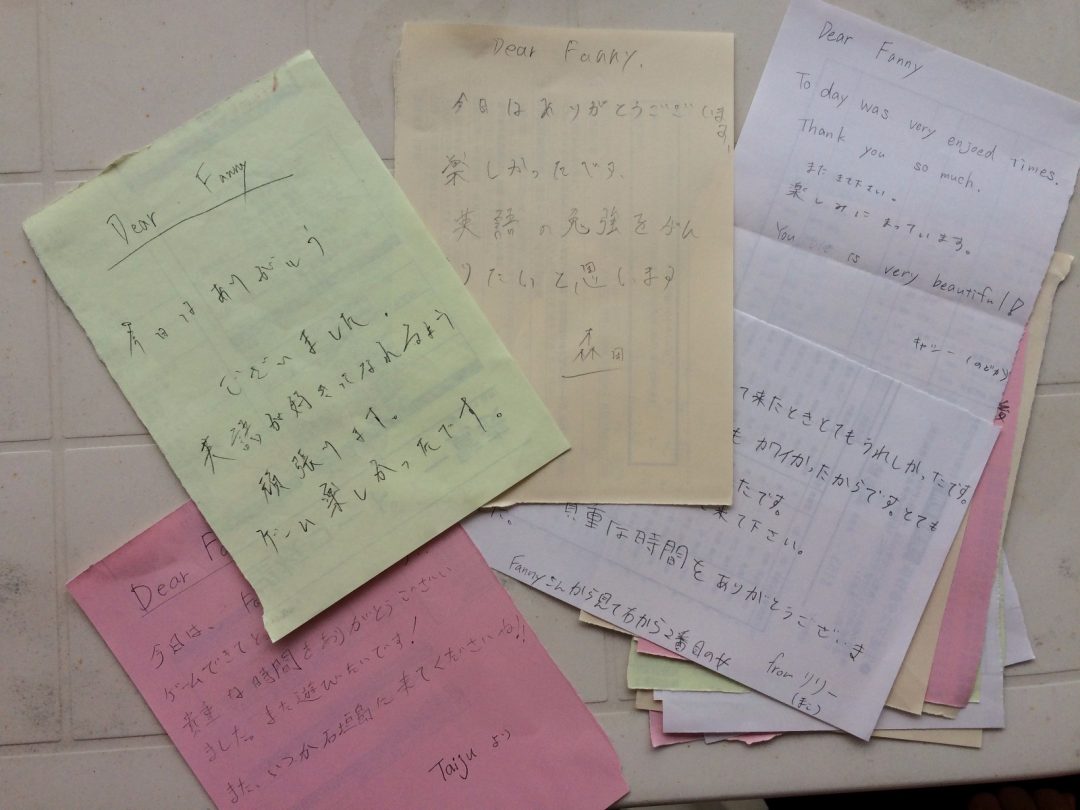 Dear Fanny
今日はありがとう
ございました。
英語が好きになれるよう
頑張ります。
ゲーム楽しかったです。
Dear Fanny.
今日はありがとうございます。
楽しかったです。
英語の勉強をがん
りたいと思います
森田
Dear Fanny
To day was very enjoed times.
Thank you so much.
また来て下さい。
楽しみにまっています。
You is very beautiful
キャシー(のどか)
て来たときとてもうれしかったです。
もカワイかったからです。とても
たです。
来て下さい。
貴重な時間をありがとうございま
た。
Fannyさんから見て右から2番目の女
from リリー
Dear Fa
今日は、
ゲームできてと
貴重な時間をありがとうござい
ました。また遊びたいです!
また、いつか石垣島に来てくださいね!!
Taijuより